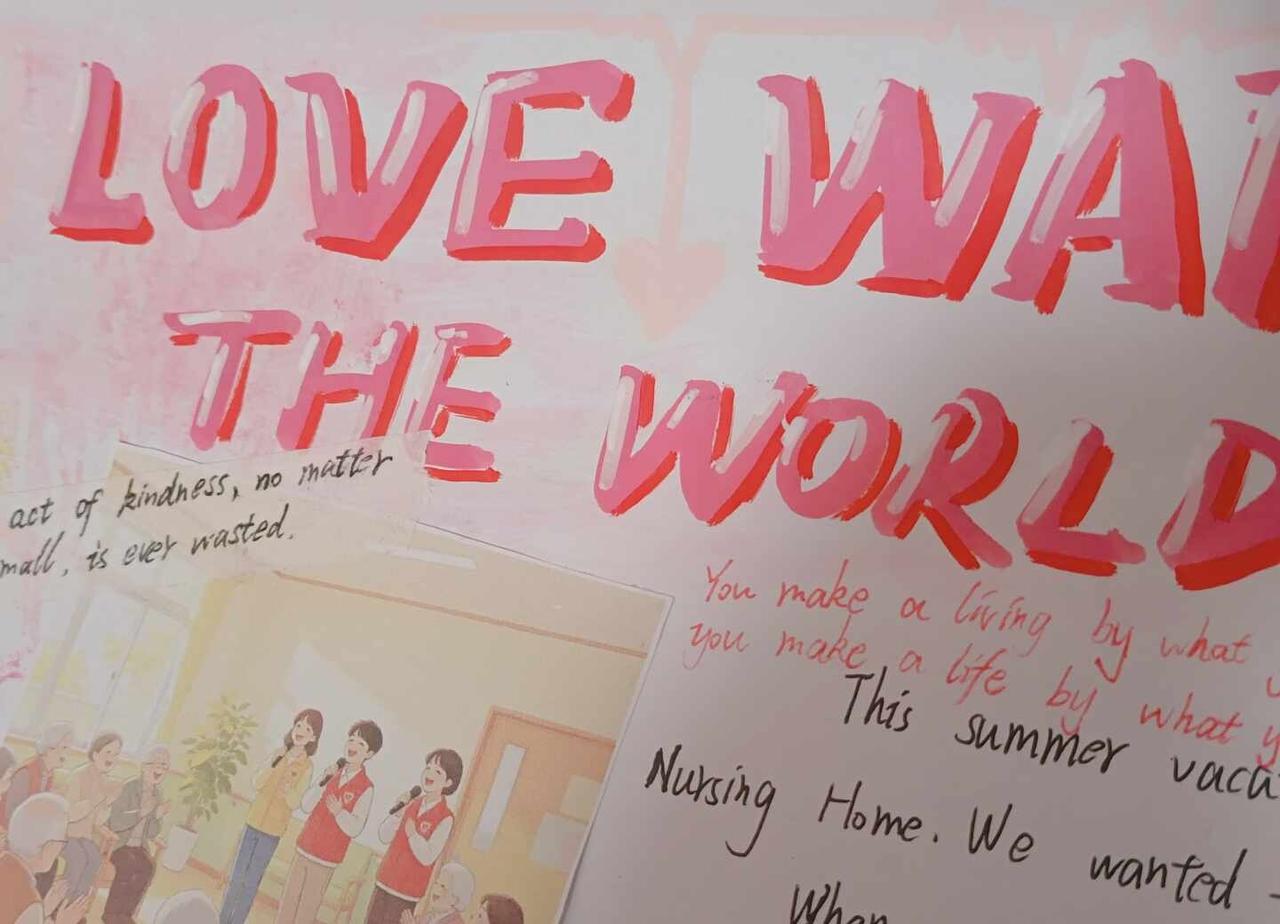 LOVE WA
THE WORLD
act of kindness, no matter
mall, is ever wasted.
You make a living by what
you make a life by what y
This summer vaca
Nursing Home. We wanted
When